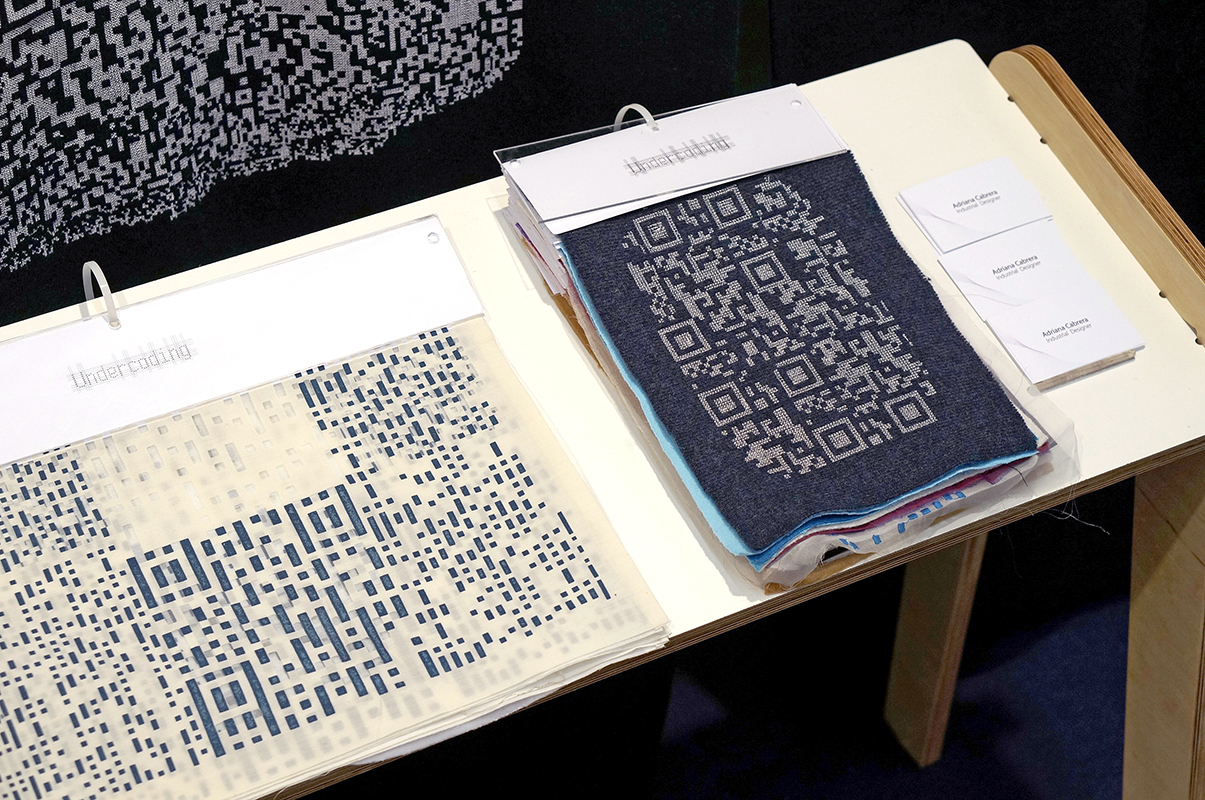 Undercoding
Undercoding
Adriana Cabrera
Industrial Designer
Adriana Cabrera
Industrial Designer
Adriana Cabrera
Industrial Designer